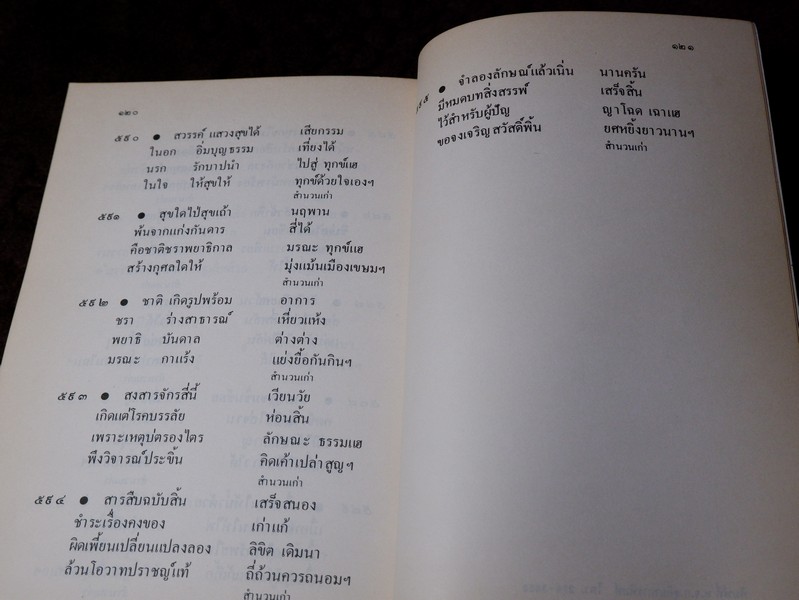 ๑๒๐
๕๙๐ ● สวรรค์ แสวงสุขได้ เสียกรรม
ในอก อิ่มบุญธรรม เที่ยงได้
นรก รักบาปนำ ไปสู่ ทุกข์แฮ
ในใจ ให้สุขให้ ทุกข์ด้วยใจเองฯ
สำนวนเก่า
๕๙๑ ● สุขใดไป่สุขเถ้า นฤพาน
พ้นจากแก่งกันดาร สี่ได้
คือชาติชราพยาธิกาล มรณะ ทุกข์แฮ
สร้างกุศลใดให้ มุ่งแม้นเมืองเขษมฯ
สำนวนเก่า
๕๙๒ ● ชาติ เกิดรูปพร้อม อาการ
ชรา ร่างสาธารณ์ เหี่ยวแห้ง
พยาธิ บันดาล ต่างต่าง
มรณะ กาแร้ง แย่งยื้อกันกินฯ
สำนวนเก่า
๕๙๓ ● สงสารจักรสี่นี้ เวียนวัย
เกิดแต่โรคบรรลัย ห่อนสิ้น
เพราะเหตุบ่ตรองไตร ลักษณะ ธรรมแฮ
พึงวิจารณ์ประขิ้น คิดเค้าเปล่าสูญฯ
สำนวนเก่า
๕๙๔ ● สารสืบฉบับสิ้น เสร็จสนอง
ชำระเรื่องคงของ เก่าแก้
ผิดเพี้ยนเปลี่ยนแปลงลอง ลิขิต เดิมนา
ล้วนโอวาทปราชญ์แท้ ถี่ถ้วนควรถนอมฯ
สำนวนเก่า
๑๒๑
● จำลองลักษณ์แล้วเนิ่น นานครัน
มีหมดบทสิ่งสรรพ์ เสร็จสิ้น
ไว้สำหรับผู้ปัญ ญาโฉด เฉาแฮ
ขอจงเจริญสวัสดิ์พิ้น ยศหยิ้งยาวนานฯ
สำนวนเก่า